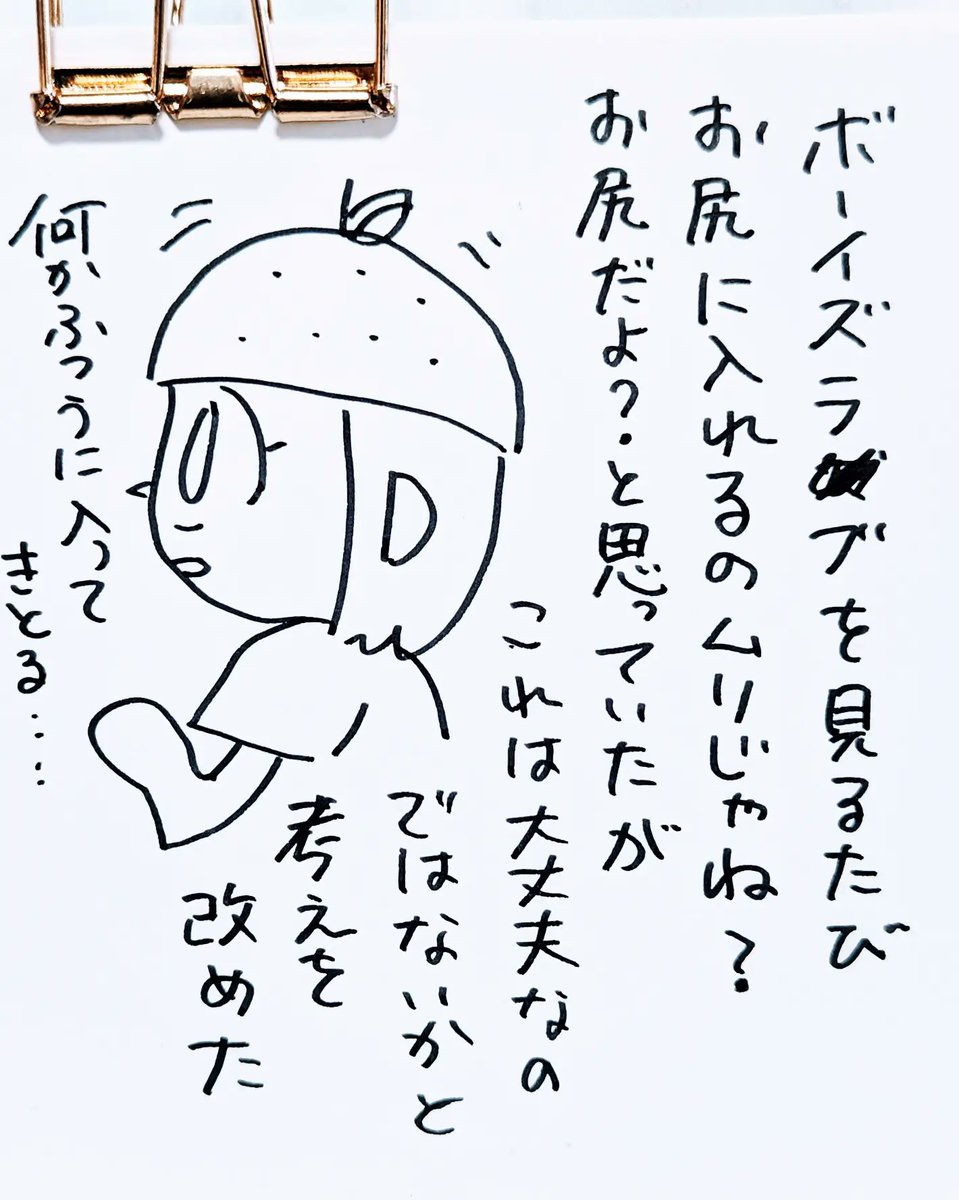 ボーイズラブを見るたび
お尻に入れるのムリじゃね?
お尻だよ?と思っていたが
これは大丈夫なの
ではないかと
考えを
改めた
何かふつうに入って
きとる……